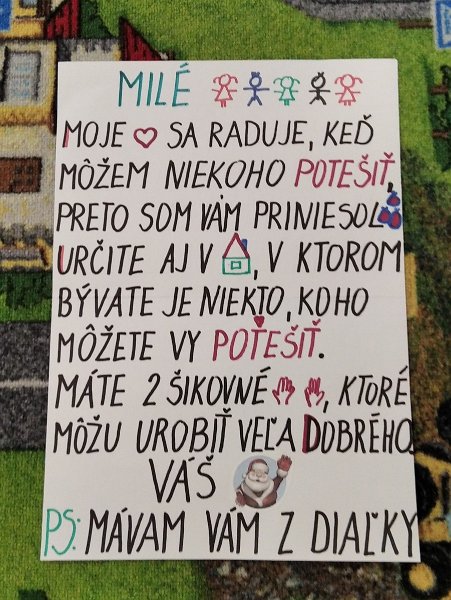 MILÉ
MOJE SA RADUJE, KEĎ
MÔŽEM NIEKOHO POTEŠIŤ,
PRETO SOM VÁM PRINIESOL
URČITE AJ V , V KTOROM
BÝVATE JE NIEKTO, KOHO
MÔŽETE VY POTEŠIŤ.
MÁTE 2 ŠIKOVNÉ , KTORÉ
MÔŽU UROBIŤ VEĽA DOBRÉHO
VÁŠ
PS: MÁVAM VÁM Z DIAĽKY